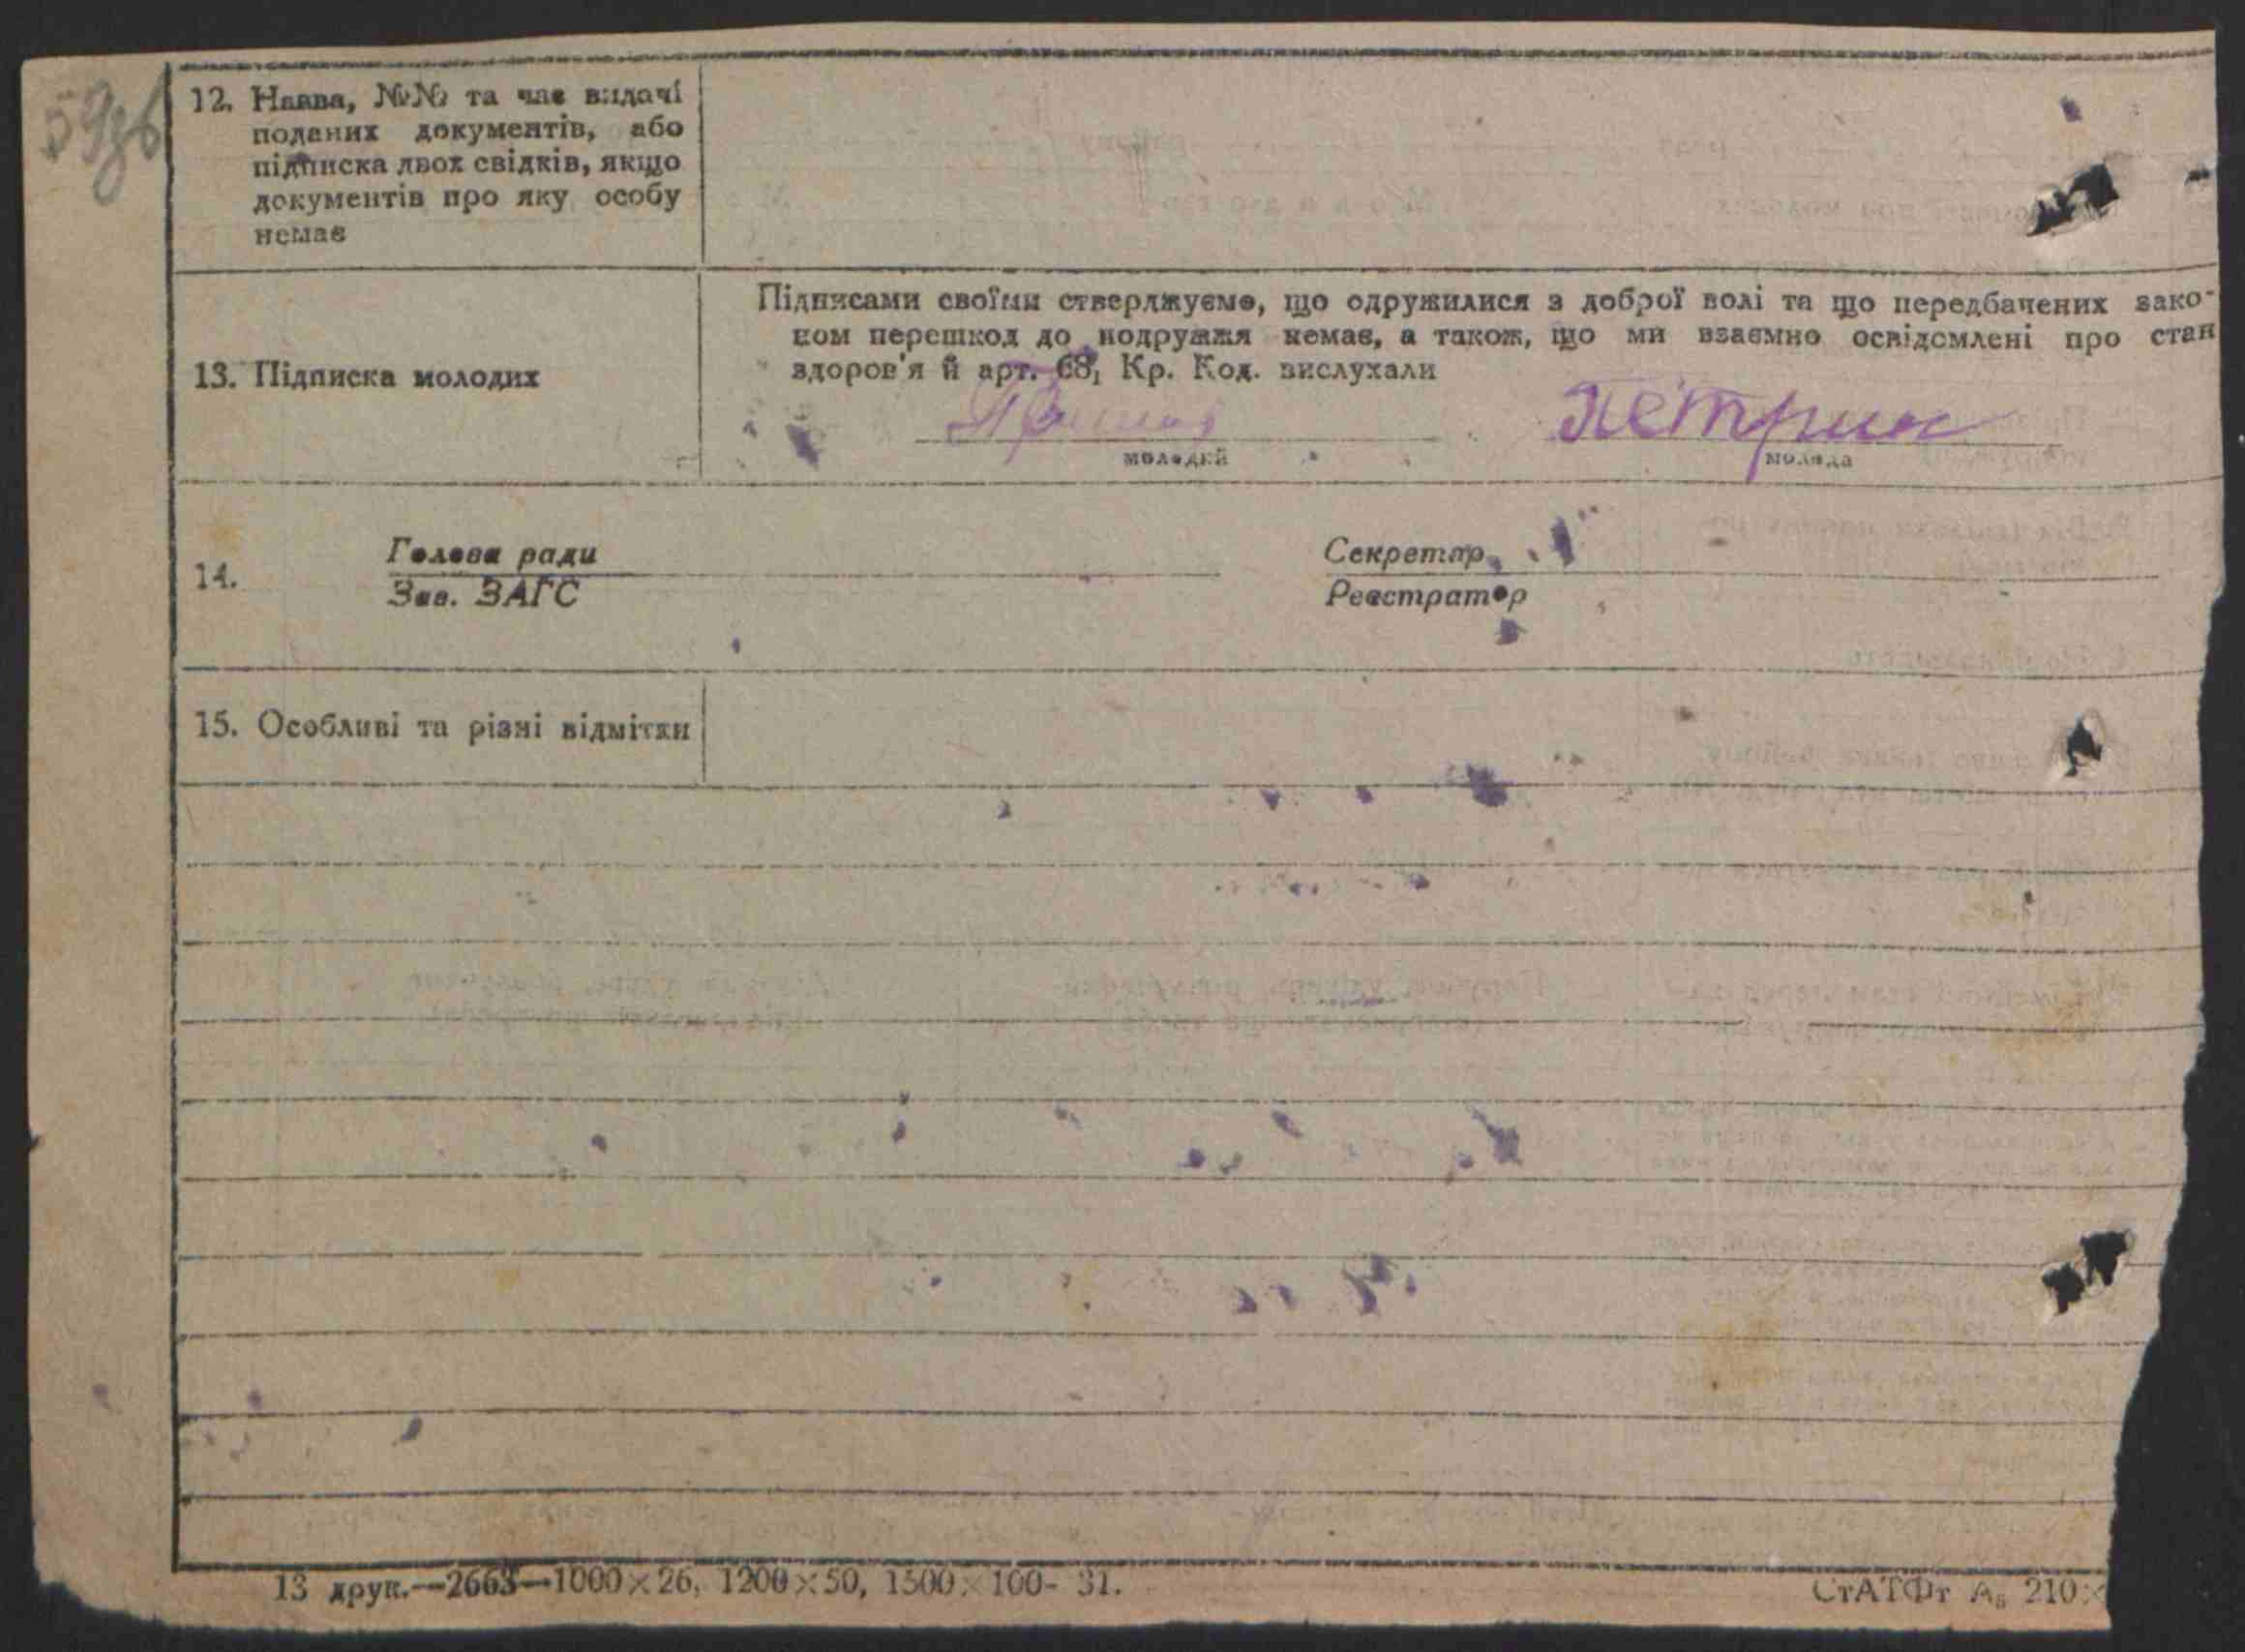 59зв
12. Назва, №№ та час видачі
поданих документів, або
підписка двох свідків, якщо
документів про яку особу
немає
Підписами своїми стверджуємо, що одружилися з доброї волі та що передбачених зако-
ном перешкод до подружжя немає, а також, що ми взаємно освідомлені про стан
здоров'я й арт. 68, Кр. Код. вислухали
13. Підписка молодих
Петрик
молодий молода
14. Голова ради Секретар
Зав. ЗАГС Реєстратор
15. Особливі та різні відмітки
13 друк.—2663—1000×26, 1200×50, 1500×100- 31. СтАТФт А5 210×